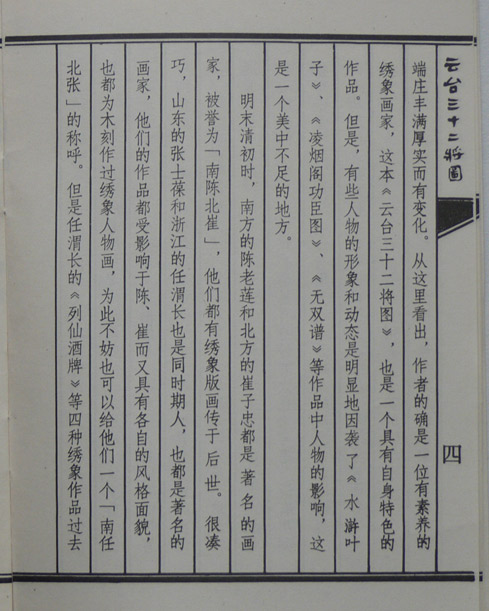 云台三十二将图
四
端庄丰满厚实而有变化。从这里看出，作者的确是一位有素养的
绣象画家，这本《云台三十二将图》，也是一个具有自身特色的
作品。但是，有些人物的形象和动态是明显地因袭了《水浒叶
子》、《凌烟阁功臣图》、《无双谱》等作品中人物的影响，这
是一个美中不足的地方。
明末清初时，南方的陈老莲和北方的崔子忠都是著名的画
家，被誉为「南陈北崔」，他们都有绣象版画传于后世。很凑
巧，山东的张士葆和浙江的任渭长也是同时期人，也都是著名的
画家，他们的作品都受影响于陈、崔而又具有各自的风格面貌，
也都为木刻作过绣象人物画，为此不妨也可以给他们一个「南任
北张」的称呼。但是任渭长的《列仙酒牌》等四种绣象作品过去